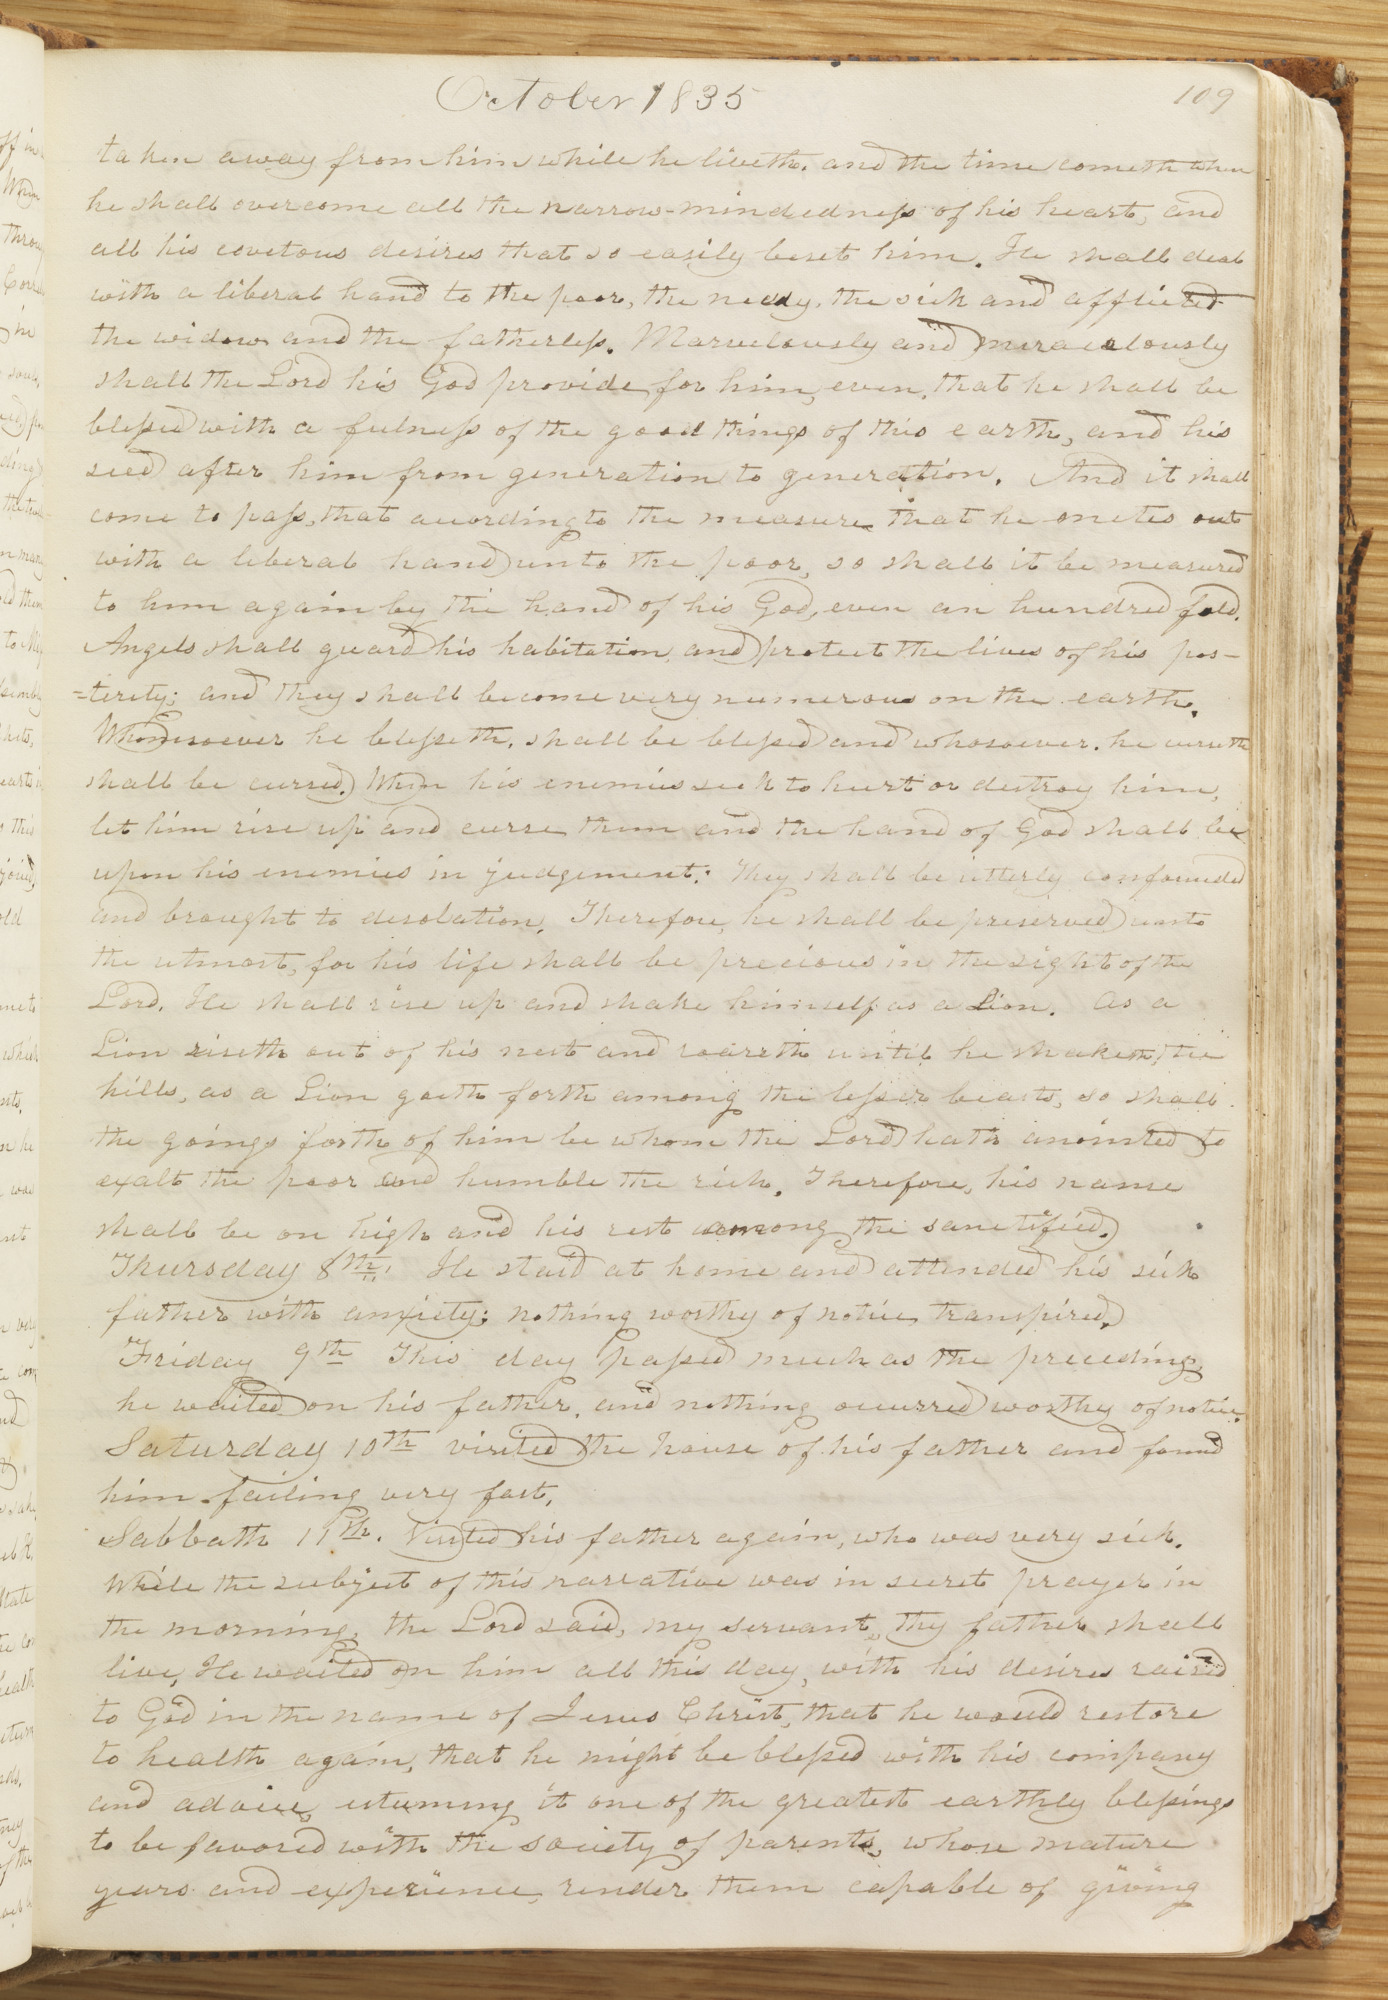 October 1835
109
taken away from him while he liveth. and the time cometh when
he shall overcome all the narrow-mindedness of his heart, and
all his covetous desires that so easily beset him. He shall deal
with a liberal hand to the poor, the needy, the sick and afflicted
the widow and the fatherless. Marvelously and miraculously
shall the Lord his God provide for him, even, that he shall be
blessed with a fulness of the good things of this earth, and his
seed after him from generation to generation. And it shall
come to pass, that according to the measure that he metes out
with a liberal hand unto the poor, so shall it be measured
to him again by the hand of his God, even an hundred fold.
Angels shall guard his habitation, and protect the lives of his pos-
=terity; and they shall become very numerous on the earth.
Whomsoever he blesseth, shall be blessed and whosoever. he curseth
shall be cursed. When his enemies seek to hurt or destroy him,
let him rise up and curse them and the hand of God shall be
upon his enemies in judgement: They shall be utterly confounded
and brought to desolation. Therefore, he shall be preserved unto
the utmost, for his life shall be precious in the sight of the
Lord. He shall rise up and shake himself as a Lion. As a
Lion riseth out of his nest and roareth until he shaketh the
hills, as a Lion goeth forth among the lesser beasts, so shall
the goings forth of him be whom the Lord hath anointed to
exalt the poor and humble the rich. Therefore, his name
shall be on high and his rest among the sanctified.
Thursday 8th. He staid at home and attended his sick
father with anxiety; nothing worthy of notice transpired.
Friday 9th This day passed much as the preceding,
he waited on his father. and nothing occurred worthy of notice.
Saturday 10th visited the house of his father and found
him failing very fast,
Sabbath 11th. Visited his father again, who was very sick.
While the subject of this narrative was in secret prayer in
the morning, the Lord said, my servant, thy father shall
live, He waited on him all this day, with his desires raised
to God in the name of Jesus Christ, that he would restore
to health again, that he might be blessed with his company
and advice, esteeming it one of the greatest earthly blessings
to be favored with the society of parents, whose mature
years and experience, render them capable of giving